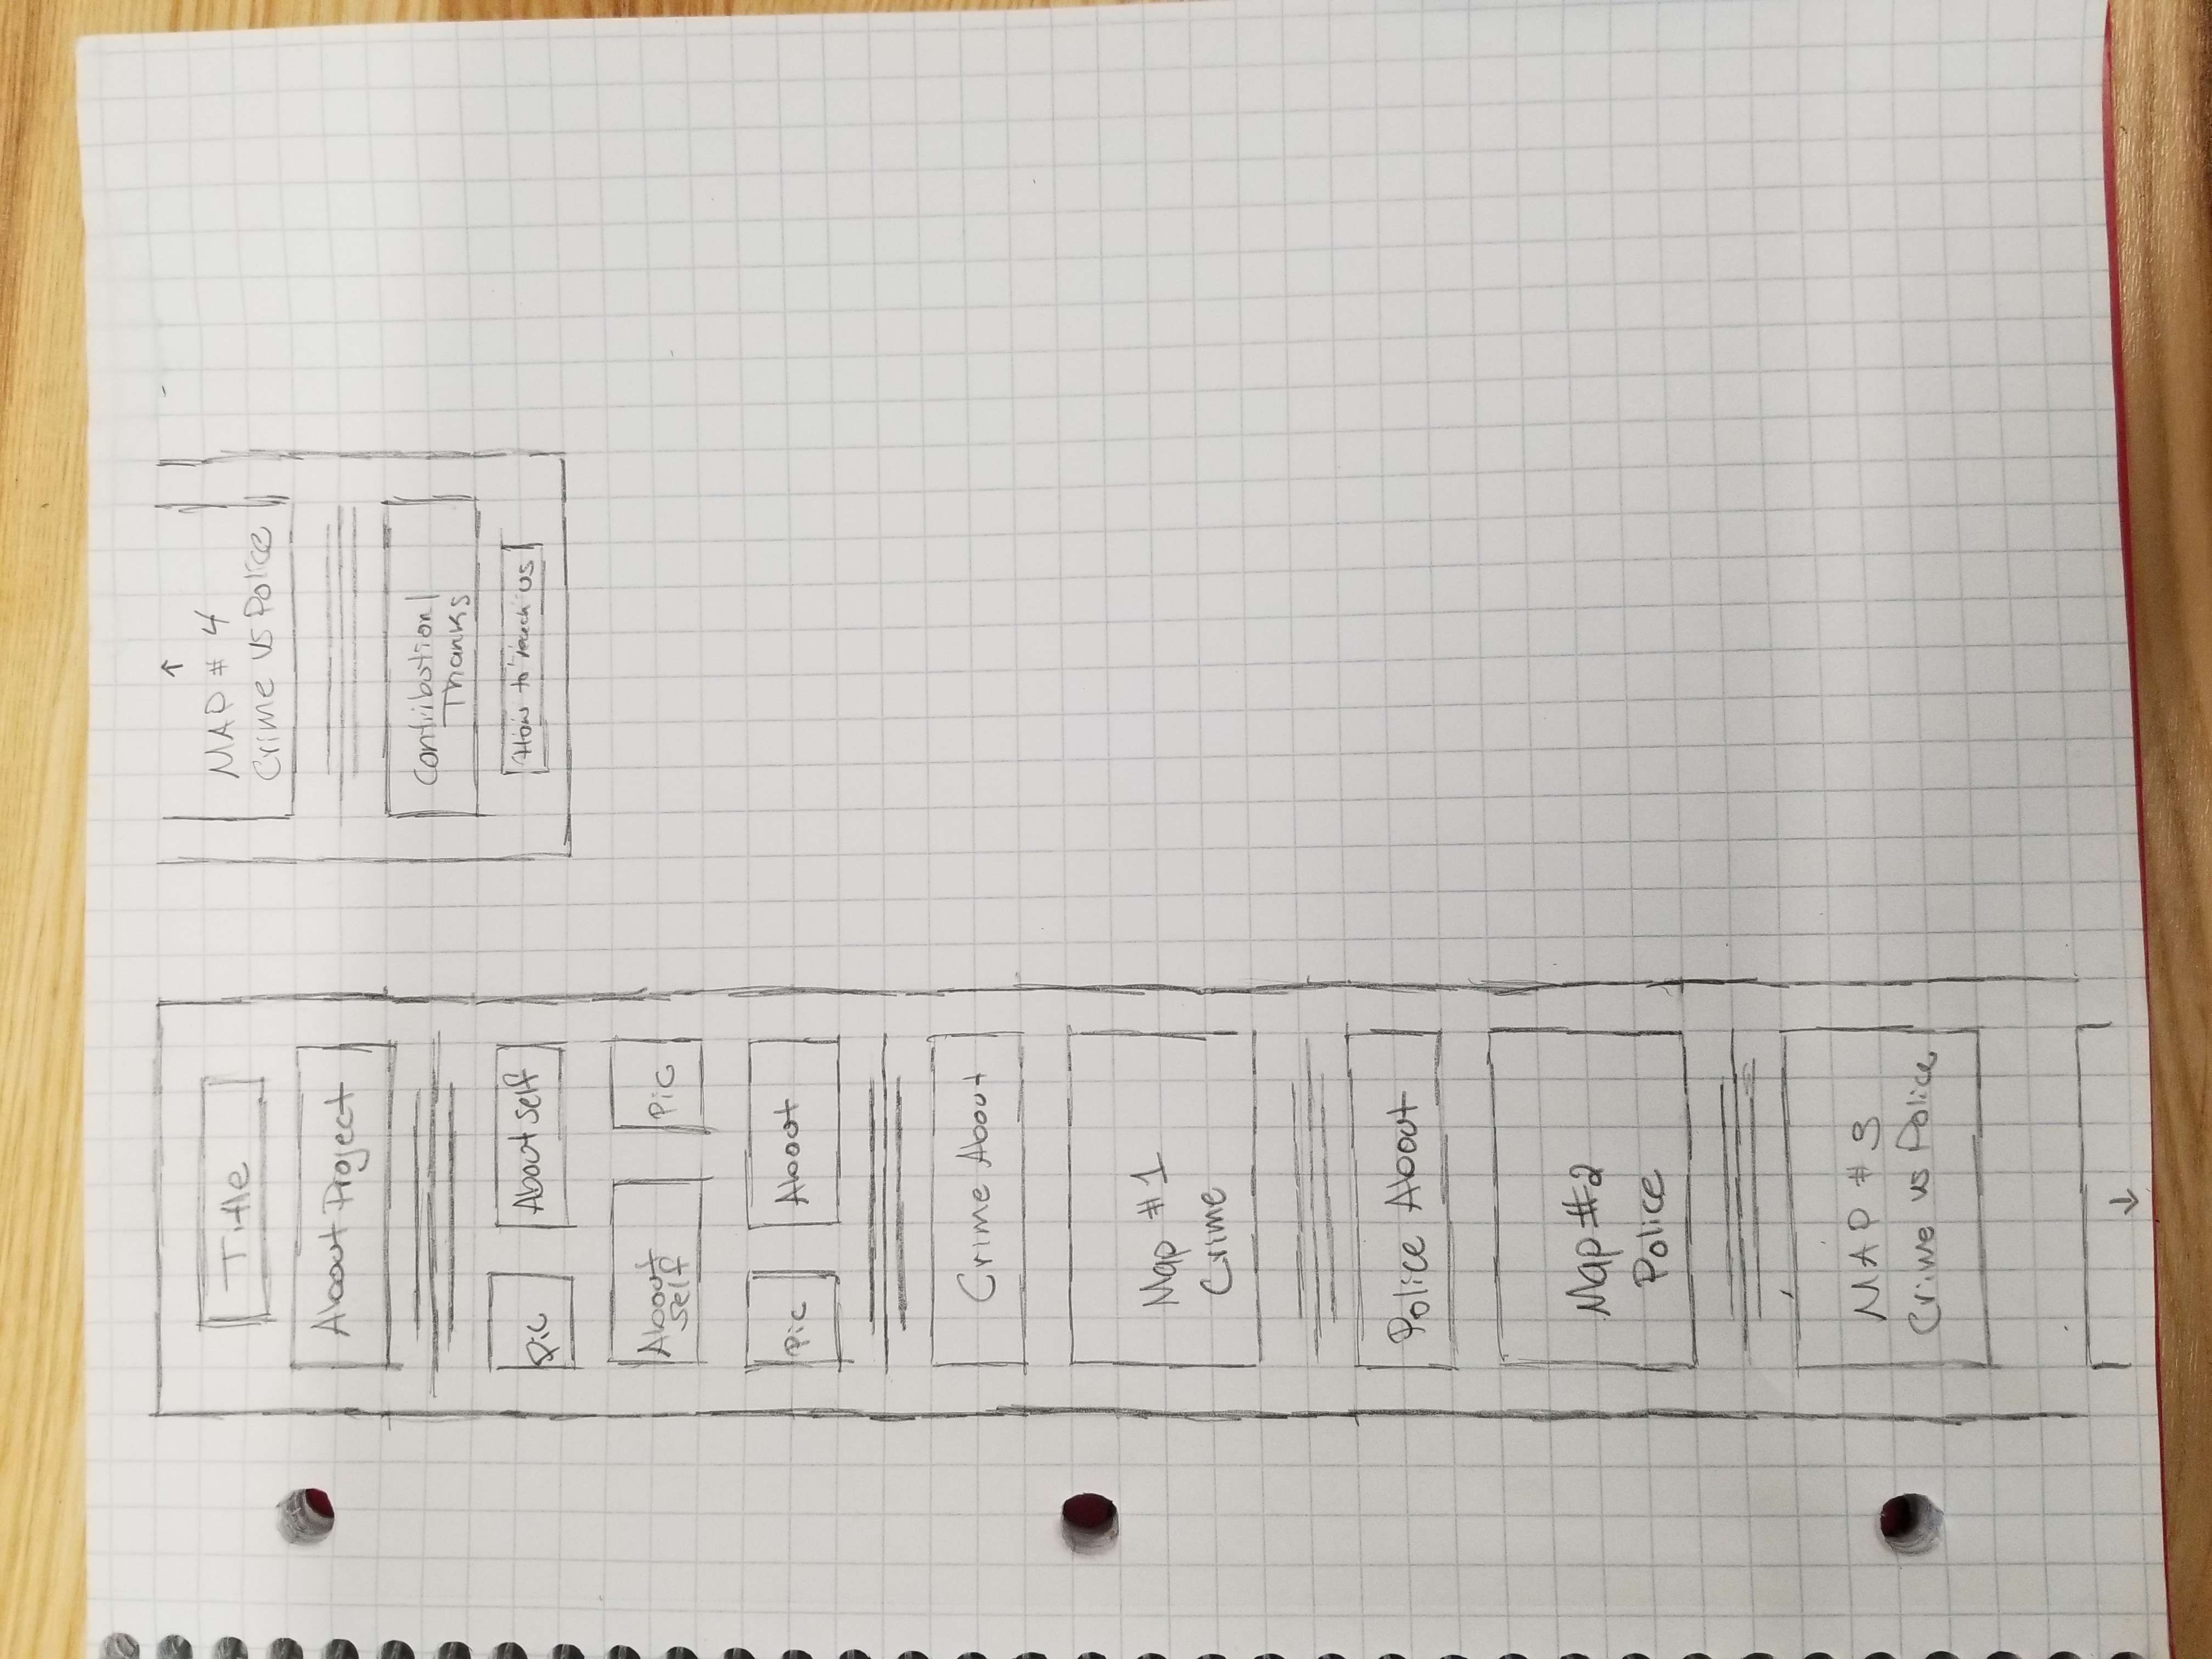 Title
About Project
Pic
About self
About
self
Pic
Pic
About
Crime About
Map #1
Crime
Police About
Map #2
Police
MAP # 3
Crime vs Police
MAP # 4
Crime vs Police
Contribution/
Thanks
How to reach us